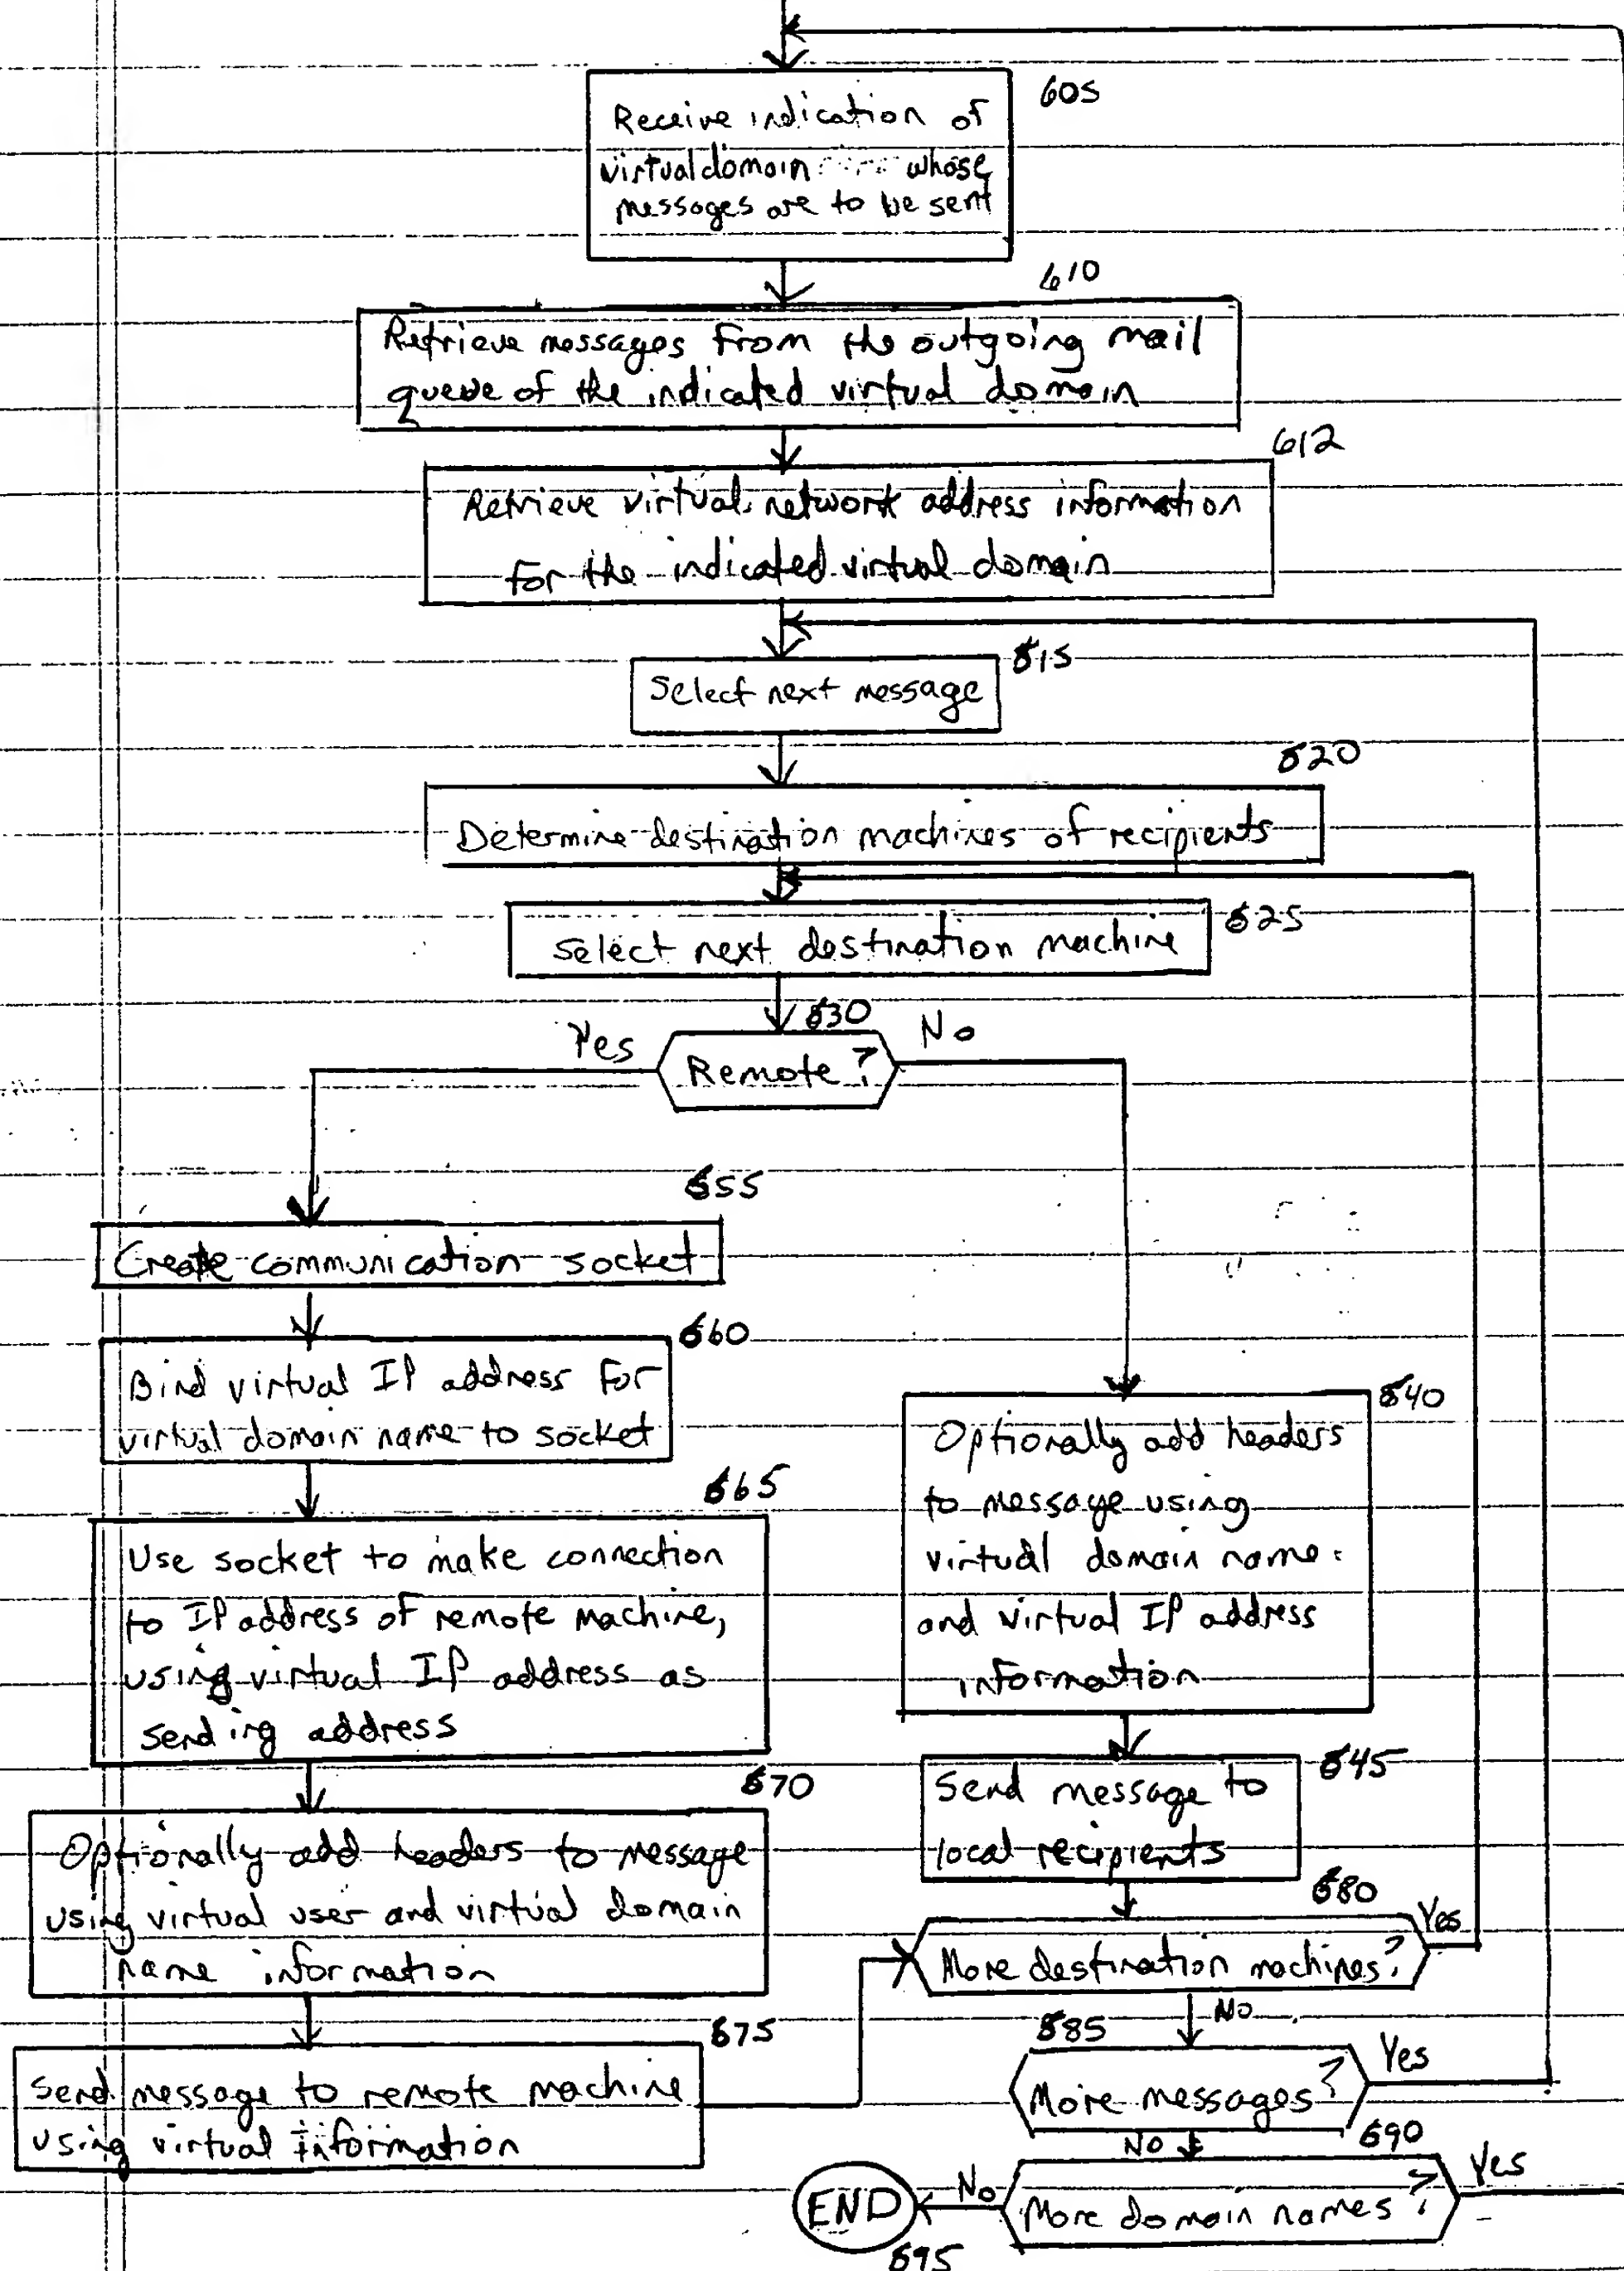 605
Receive indication of
virtual domain whose
messages are to be sent
610
Retrieve messages from the outgoing mail
queue of the indicated virtual domain
612
Retrieve virtual network address information
for the indicated virtual domain
615
Select next message
620
Determine destination machines of recipients
625
Select next destination machine
630
Yes
Remote?
No
655
Create communication socket
660
Bind virtual IP address for
virtual domain name to socket
665
Use socket to make connection
to IP address of remote machine,
using virtual IP address as
sending address
670
Optionally add headers to message
using virtual user and virtual domain
name information
675
Send message to remote machine
using virtual information
640
Optionally add headers
to message using
virtual domain name
and virtual IP address
information
645
Send message to
local recipients
680
More destination machines?
Yes
No
685
More messages?
Yes
No
690
More domain names?
Yes
No
END
695